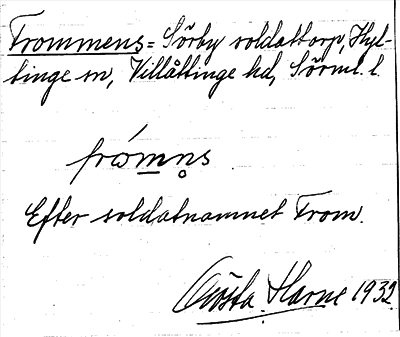 Trommens = Sörby soldattorp, Hyl-
tinge sn, Villåttinge hd, Sörml. l.
Efter soldatnamnet Trom.
Gösta Harne 1932